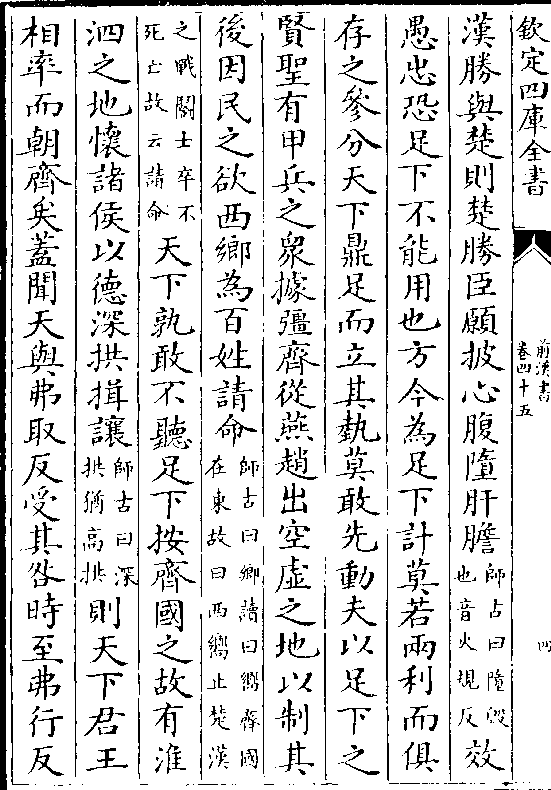 欽定四庫全書
前漢書
卷四十五
四
漢勝與楚則楚勝臣願披心腹墮肝膽師古曰墮毀也音火規反效
愚忠恐足下不能用也方今為足下計莫若兩利而俱
存之參分天下鼎足而立其埶莫敢先動夫以足下之
賢聖有甲兵之衆據彊齊從燕趙出空虛之地以制其
後因民之欲西鄉為百姓請命師古曰鄉讀曰嚮齊國在東故曰西嚮止楚漢
之戰鬬士卒不死亡故云請命天下孰敢不聽足下按齊國之故有淮
泗之地懷諸侯以德深拱揖讓師古曰深拱猶高拱則天下君王
相率而朝齊矣蓋聞天與弗取反受其咎時至弗行反